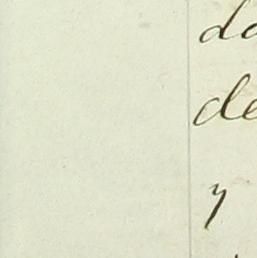 da
de
y